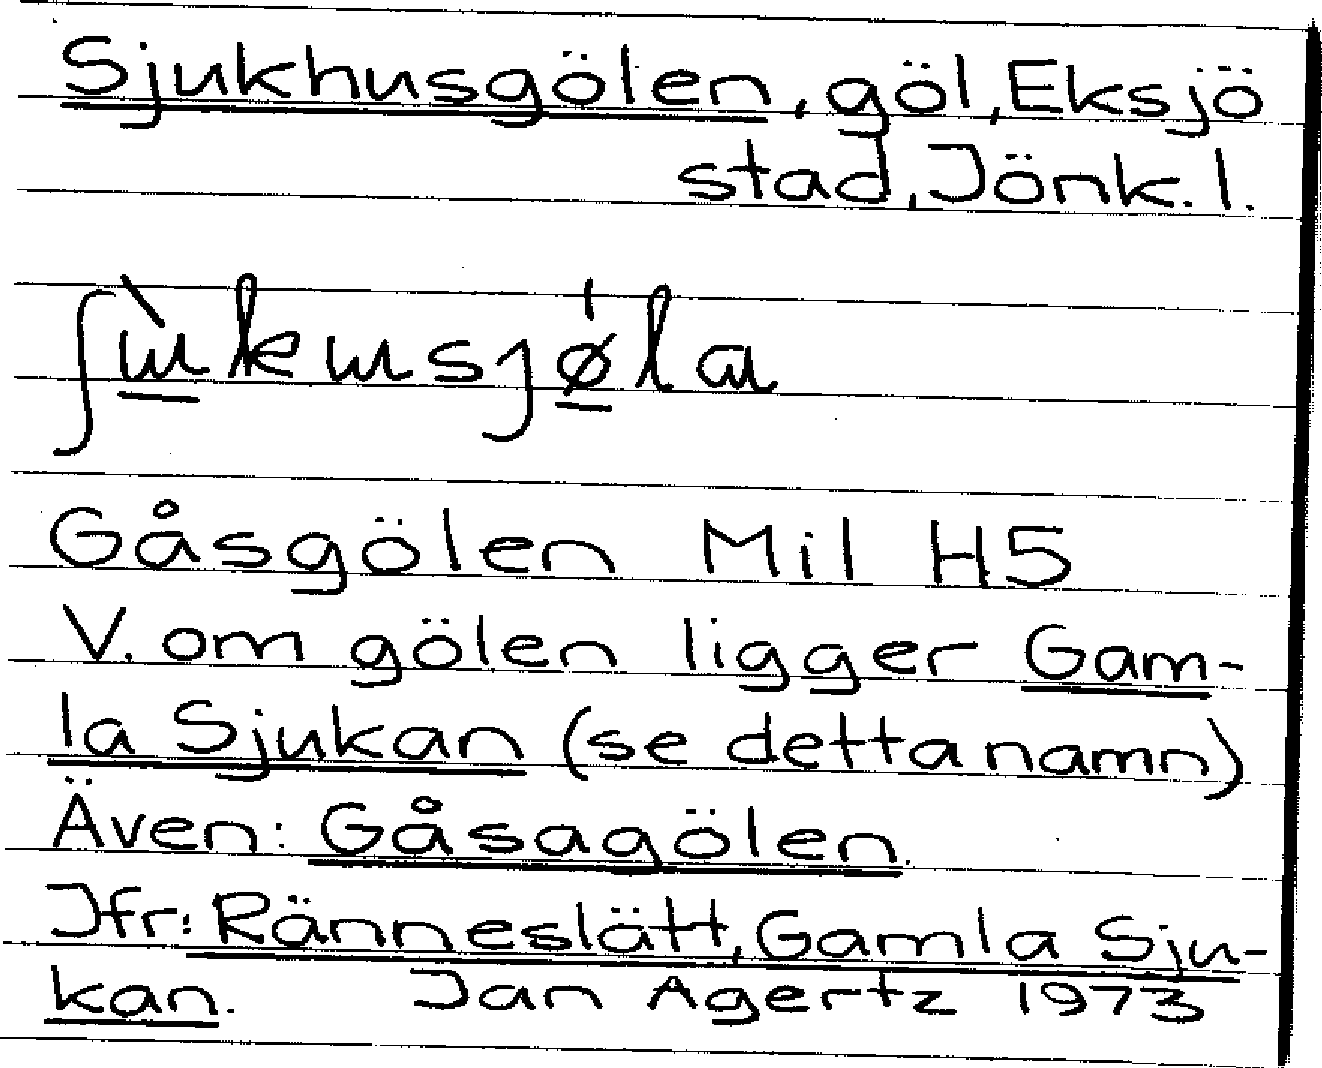 Sjukhusgölen, göl, Eksjö
stad, Jönk. l.
Gåsgölen Mil H5
V. om gölen ligger Gam-
la Sjukan (se detta namn)
Även: Gåsagölen.
Jfr: Ränneslätt, Gamla Sju-
kan. Jan Agertz 1973